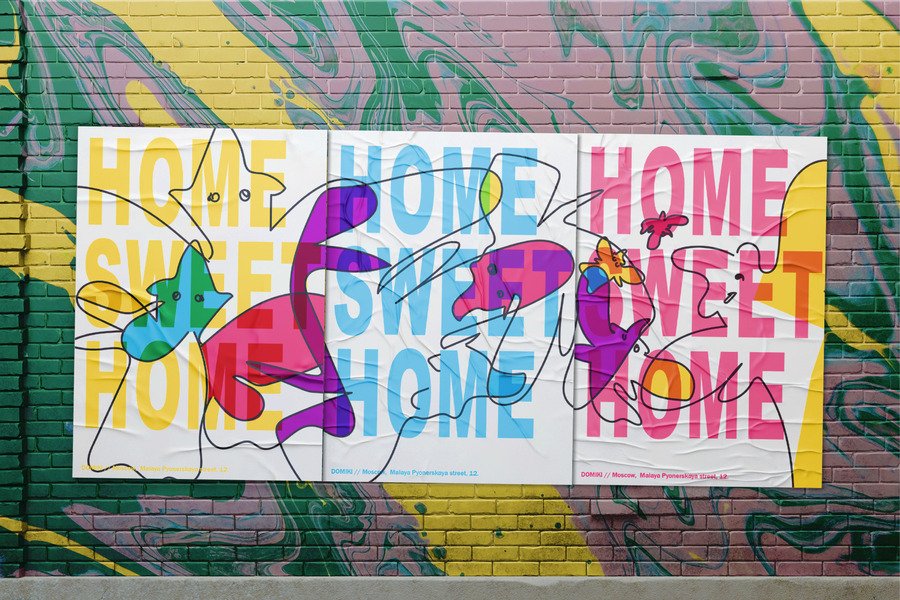 HOME
SWEET
HOME
DOMIKI // Moscow, Malaya Pyonerskaya street, 12.
HOME
SWEET
HOME
DOMIKI // Moscow, Malaya Pyonerskaya street, 12.
HOME
SWEET
HOME
DOMIKI // Moscow, Malaya Pyonerskaya street, 12.